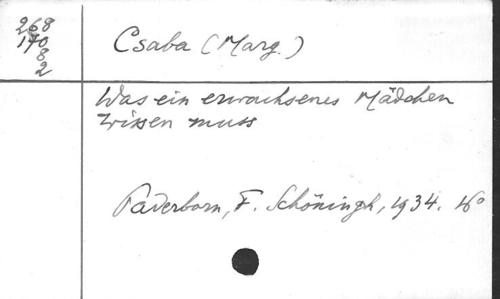 268
170
8
2
Csaba (Marg.)
Was ein erwachsenes Mädchen
wissen muss
Paderborn, F. Schöningh, 1934. 16°